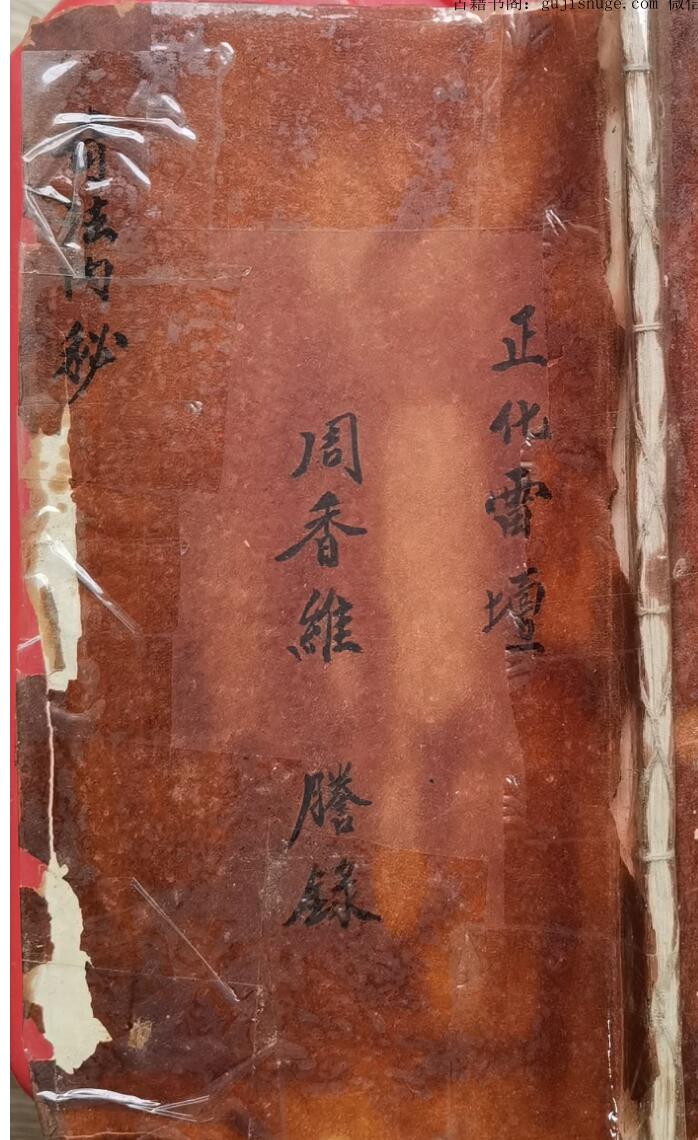 古籍书阁：gujishuge.com 微信
正化雷壇
周香維 謄錄
法內秘